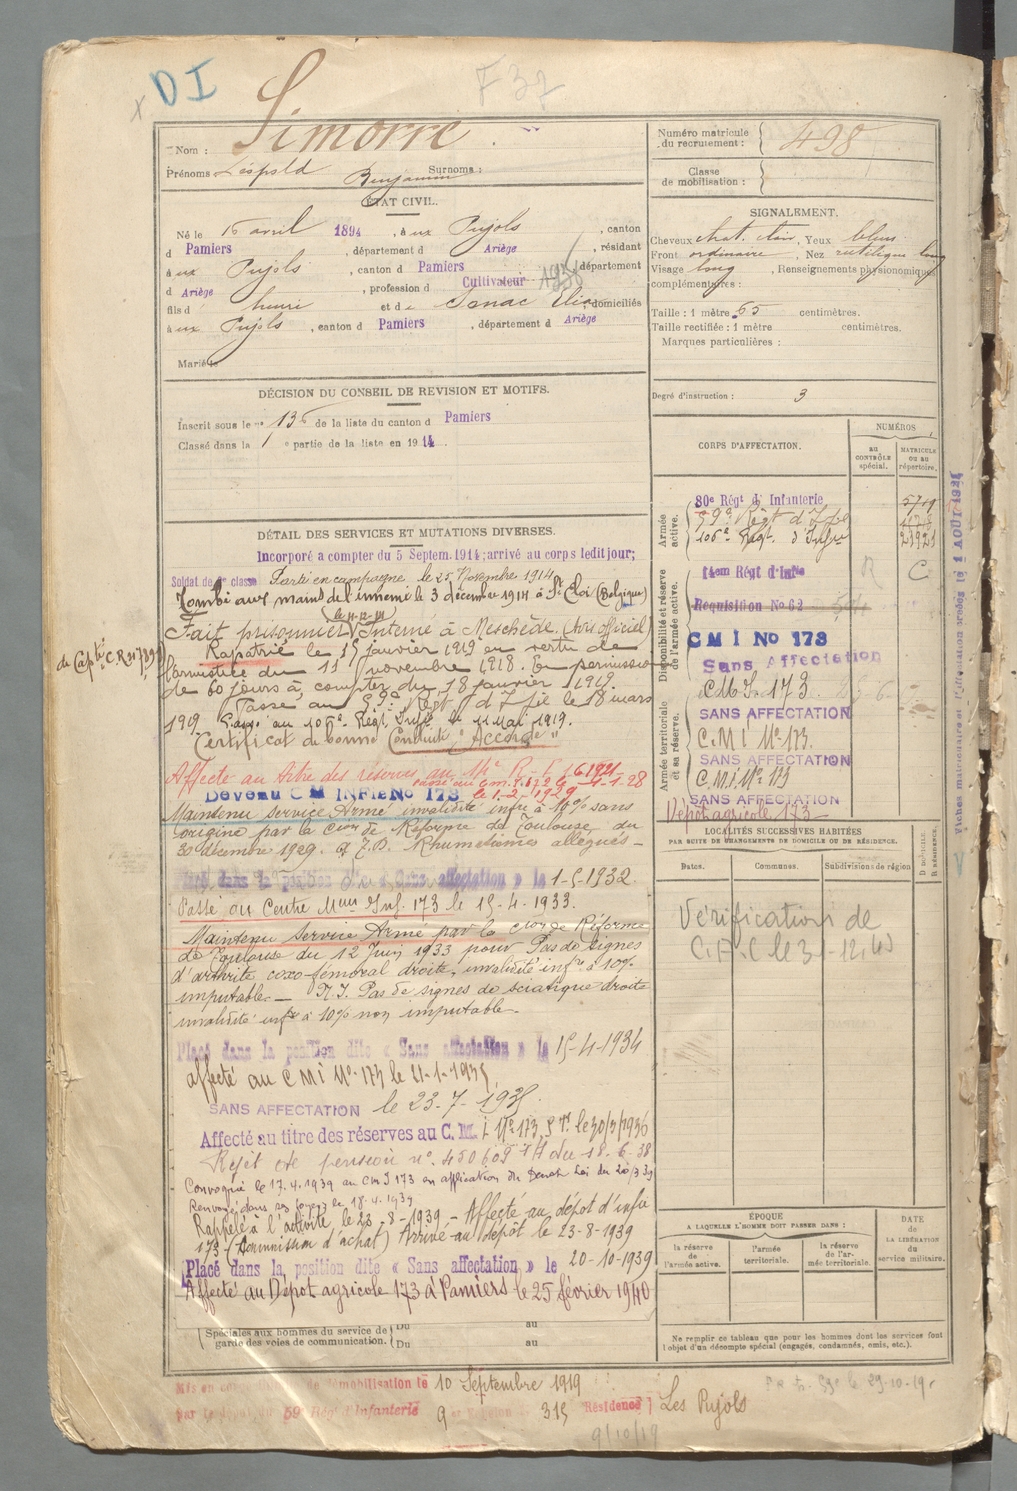 DI
F 37
Nom : Simorre
Prénoms Léopold Benjamin Surnoms :
ÉTAT CIVIL.
Né le 16 avril 1894, à ux Pujols, canton
d Pamiers, département d Ariège, résidant
à ux Pujols, canton d Pamiers, département
d Ariège, profession d Cultivateur 1936
fils d henri et de Senac Elie domiciliés
à ux Pujols, canton d Pamiers, département d Ariège
Marié le
DÉCISION DU CONSEIL DE REVISION ET MOTIFS.
Inscrit sous le no 136 de la liste du canton d Pamiers
Classé dans la 1 e partie de la liste en 1914
DÉTAIL DES SERVICES ET MUTATIONS DIVERSES.
Incorporé a compter du 5 Septem. 1914; arrivé au corps ledit jour;
Soldat de 2e classe Parti en campagne le 25 Novembre 1914
Tombé aux mains de l'ennemi le 3 décembre 1914 à St Eloi (Belgique)
(le 11-12-14)
Fait prisonnier Interné à Meschède. (Avis officiel)
Rapatrié le 15 janvier 1919 en vertu de
l'armistice du 11 novembre 1918. En permission
de 60 jours à compter du 18 janvier 1919.
Passé au 59e Regt d'Ie le 18 mars
1919. Passé au 106e Régt Infie le 11 Mai 1919.
Certificat de bonne Conduite "Accordé"
Affecté au titre des réserves au 14e R.I. 1.6.1921
4-1-28
Devenu C M INFie No 173 le 1-2-1929
Maintenu service Armé invalidité infre à 10% sans
origine par la Cion de Réforme de Toulouse du
30 décembre 1929. Rhumatismes allégués -
Placé dans la position dite « Sans affectation » le 1-5-1932
Passé au Centre Mun Inf. 173 le 15-4-1933.
Maintenu Service Armé par la Cion de Réforme
de Toulouse du 12 Juin 1933 pour Pas de signes
d'arthrite coxo-fémoral droite, invalidité infre à 10%
imputable — N.I. Pas de signes de sciatique droite
invalidité infre à 10% non imputable.
Placé dans la position dite « Sans affectation » le 15-4-1934
affecté au C M I No 173 le 21-1-1935
SANS AFFECTATION le 23-7-1935
Affecté au titre des réserves au C. M. I No 173
Rejet de pension no 450609 du 18-6-38
Convoqué le 17.4.1939 au CMI 173 en application
Renvoyé dans ses foyers le 18.4.1939
Rappelé à l'activité le 23-8-1939 - Affecté au dépôt d'infie
173 (Commission d'achat) Arrivé au dépôt le 23-8-1939
Placé dans la position dite « Sans affectation » le 20-10-1939
Affecté au Dépot agricole 173 à Pamiers le 25 février 1940
Spéciales aux hommes du service de garde des voies de communication.
Du au
Du au
Mis en congé de démobilisation le 10 Septembre 1919
par le dépôt du 59e Régt d'Infanterie 9e Echelon 315 Résidence Les Pujols
9/10/19
Numéro matricule du recrutement : 498
Classe de mobilisation :
SIGNALEMENT.
Cheveux chat. clair, Yeux bleus
Front ordinaire, Nez rectiligne long
Visage long, Renseignements physionomiques
complémentaires :
Taille : 1 mètre 65 centimètres.
Taille rectifiée : 1 mètre centimètres.
Marques particulières :
Degré d'instruction : 3
CORPS D'AFFECTATION.
NUMÉROS
au CONTRÔLE spécial.
MATRICULE OU AU répertoire.
Armée active.
80e Régt d' Infanterie 5719
59e Régt d'Ie
106e Régt d'Infie
Disponibilité et réserve de l'armée active.
14em Régt d'Infie C
Requisition No 62
C M I No 173
Sans Affectation
Armée territoriale et sa réserve.
CMI. 173
SANS AFFECTATION
C.M.I No 173.
SANS AFFECTATION
C.M.I. No 173
SANS AFFECTATION
Dépot agricole 173
LOCALITÉS SUCCESSIVES HABITÉES
PAR SUITE DE CHANGEMENTS DE DOMICILE OU DE RÉSIDENCE.
Dates. Communes. Subdivisions de région
D DOMICILE. R RÉSIDENCE.
Vérification de
ÉPOQUE
A LAQUELLE L'HOMME DOIT PASSER DANS :
la réserve de l'armée active.
l'armée territoriale.
la réserve de l'armée territoriale.
DATE de LA LIBÉRATION du service militaire.
Ne remplir ce tableau que pour les hommes dont les services font
l'objet d'un décompte spécial (engagés, condamnés, omis, etc.).